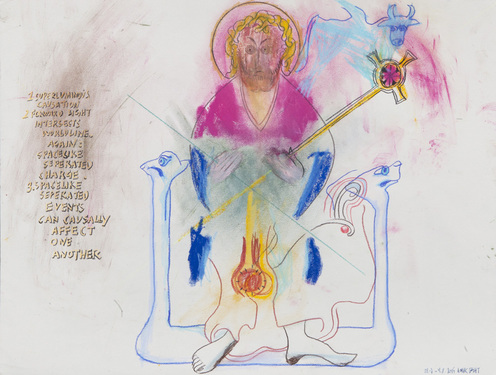 1. SUPERLUMINOUS
CAUSATION
2. LIGHT
INTERSECTS
WORLDLINE
AGAIN:
SPACELIKE
SEPERATED
CHARGE.
3. SPACELIKE
SEPERATED
EVENTS
CAN CAUSALLY
AFFECT
ONE
ANOTHER